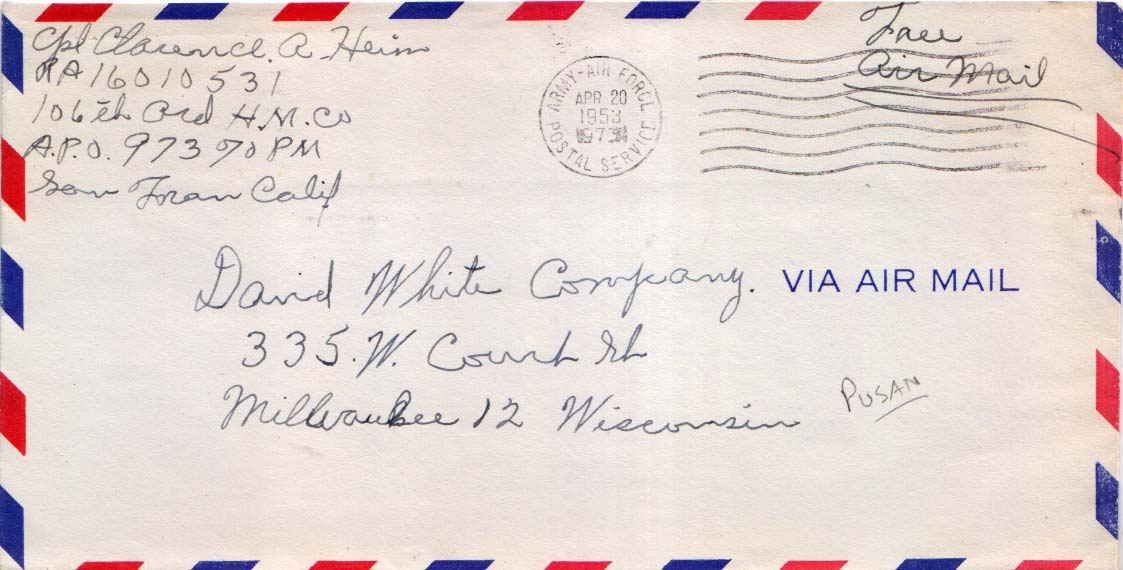 Cpl Clarence. A. Heim
RA 16010531
106th Ord H.M. Co
A.P.O. 973 70 PM
San Fran Calif
ARMY-AIR FORCE
APR 20
1953
973
POSTAL SERVICE
Free
Air Mail
David White Company.
VIA AIR MAIL
335. W. Court St
Millwaukee 12 Wisconsin
PUSAN